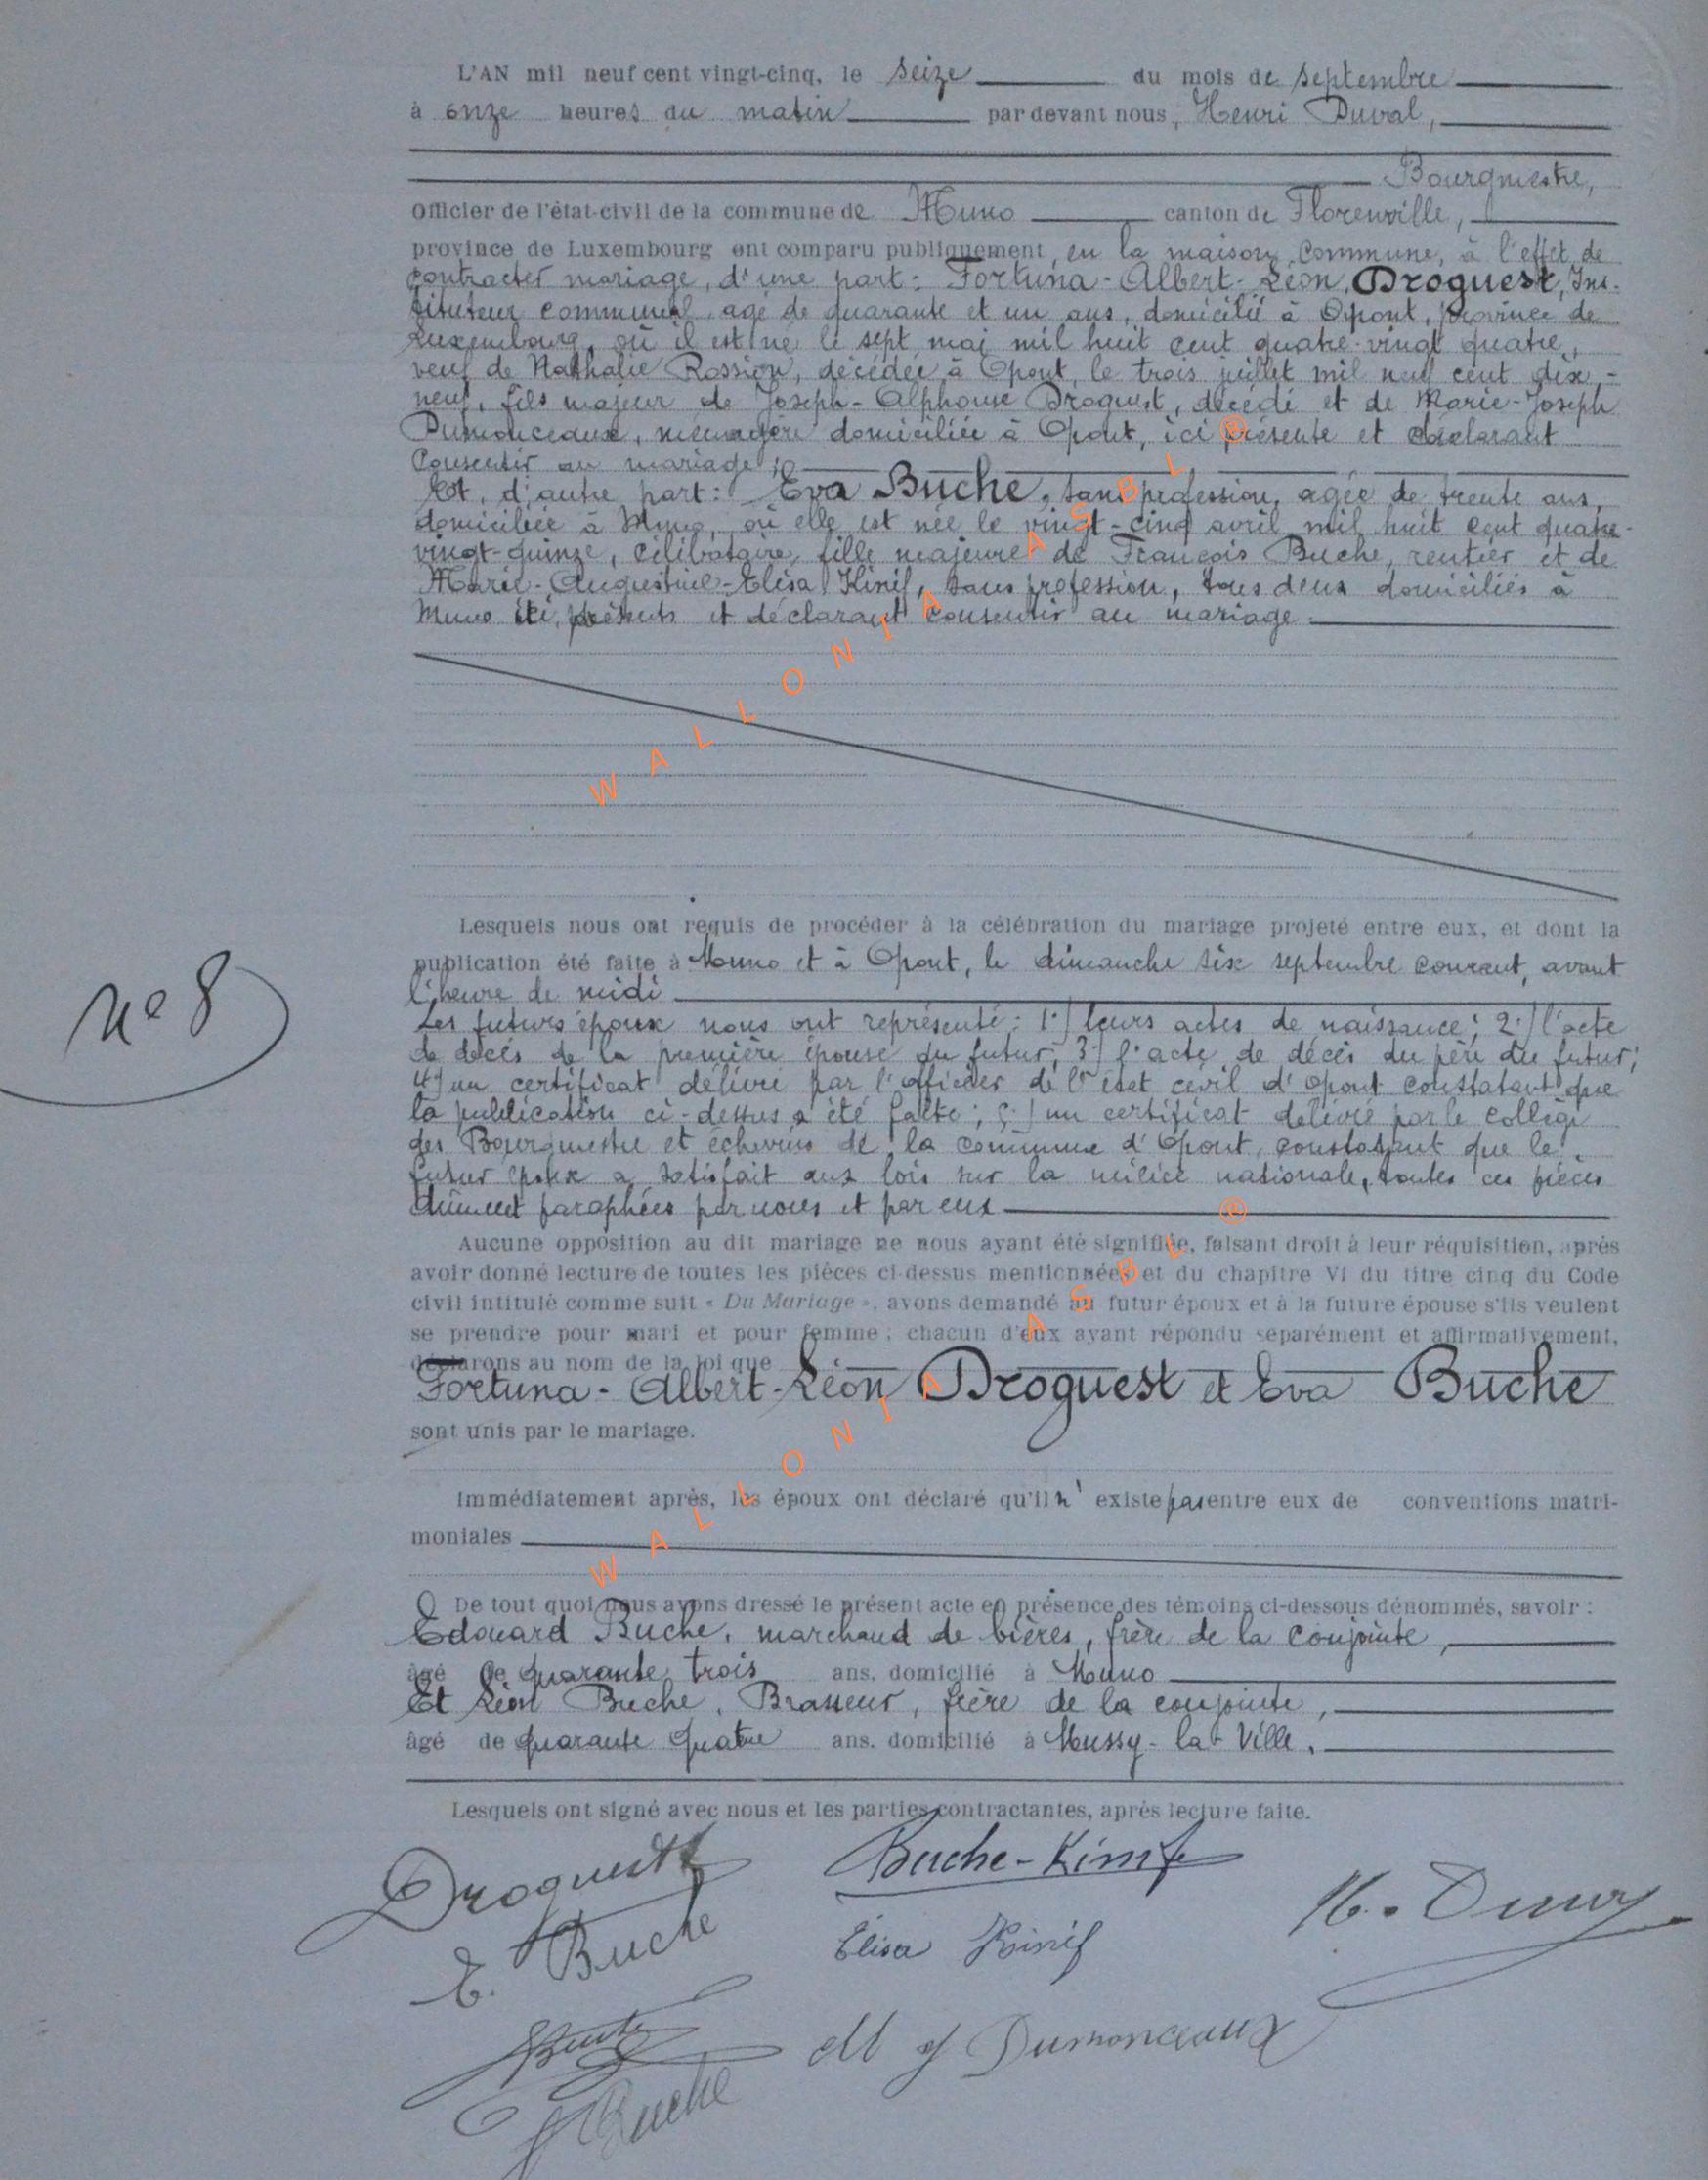 L'AN mil neuf cent vingt-cinq, le seize du mois de septembre
à onze heures du matin par devant nous, Henri Duval,
Bourgmestre,
Officier de l'état-civil de la commune de Muno canton de Florenville,
province de Luxembourg ont comparu publiquement, en la maison commune, à l'effet de
contracter mariage, d'une part: Fortuna-Albert-Léon Droguest, Ins-
tituteur communal, agé de quarante et un ans, domicilié à Opont, province de
Luxembourg, où il est né le sept mai mil huit cent quatre-vingt quatre,
veuf de Nathalie Rossion, décédée à Opont, le trois juillet mil neuf cent dix-
neuf, fils majeur de Joseph-Alphonse Droguest, décédé et de Marie-Joseph
Dumonceaux, ménagère domiciliée à Opont, ici présente et déclarant
consentir au mariage;
Et, d'autre part: Eva Buche, sans profession, agée de trente ans,
domiciliée à Muno, où elle est née le vingt-cinq avril mil huit cent quatre-
vingt-quinze, célibataire, fille majeure de François Buche, rentier et de
Marie-Augustine-Elisa Kinif, sans profession, tous deux domiciliés à
Muno ici présents et déclarant consentir au mariage.
Lesquels nous ont requis de procéder à la célébration du mariage projeté entre eux, et dont la
publication été faite à Muno et à Opont, le dimanche six septembre courant, avant
l'heure de midi
nº 8
Les futurs époux nous ont représenté: 1º) leurs actes de naissance; 2º) l'acte
de décès de la première épouse du futur; 3º) l'acte de décès du père du futur;
4º) un certificat délivré par l'officier de l'état civil d'Opont constatant que
la publication ci-dessus a été faite; 5º) un certificat délivré par le collège
des Bourgmestre et échevins de la commune d'Opont, constatant que le
futur époux a satisfait aux lois sur la milice nationale, toutes ces pièces
dûment paraphées par nous et par eux
Aucune opposition au dit mariage ne nous ayant été signifiée, faisant droit à leur réquisition, après
avoir donné lecture de toutes les pièces ci-dessus mentionnées et du chapitre VI du titre cinq du Code
civil intitulé comme suit « Du Mariage », avons demandé au futur époux et à la future épouse s'ils veulent
se prendre pour mari et pour femme; chacun d'eux ayant répondu séparément et affirmativement,
déclarons au nom de la loi que
Fortuna-Albert-Léon Droguest et Eva Buche
sont unis par le mariage.
Immédiatement après, les époux ont déclaré qu'il n'existe pas entre eux de conventions matri-
moniales
De tout quoi nous avons dressé le présent acte en présence des témoins ci-dessous dénommés, savoir:
Edouard Buche, marchand de bières, frère de la conjointe,
âgé de quarante trois ans, domicilié à Muno
Et Léon Buche, Brasseur, frère de la conjointe,
âgé de quarante quatre ans, domicilié à Mussy-la-Ville.
Lesquels ont signé avec nous et les parties contractantes, après lecture faite.
Droguest
Buche-Kinif
H. Duval
E. Buche
Elisa Kinif
M J Dumonceaux
Buche
WALLONIA ASBL ®
WALLONIA ASBL ®